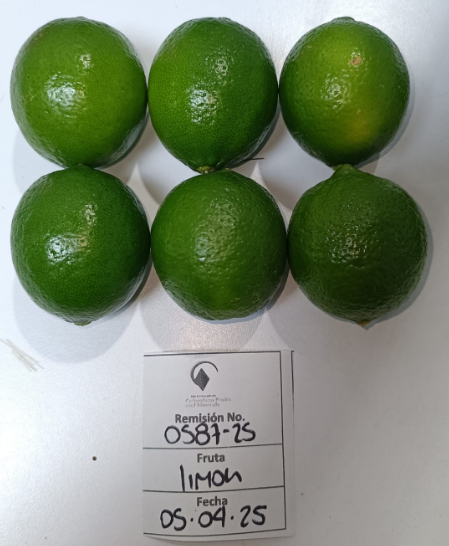 Remisión No.
0587-25
Fruta
limon
Fecha
05.04.25